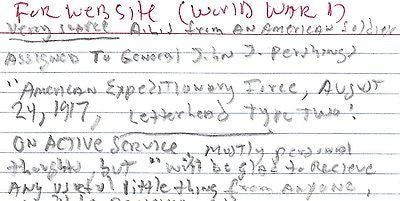 FOR WEBSITE (WORLD WAR 1)
Very scarce A.L.S from AN AMERICAN SOLDIER
ASSIGNED TO GENERAL JOHN J. PERSHINGS
"AMERICAN EXPEDITIONARY FORCE, AUGUST
24, 1917, Letterhead Type Two!
ON ACTIVE SERVICE, MOSTLY personal
thoughts, but "will be glad to Recieve
ANY useful little thing from anyone,